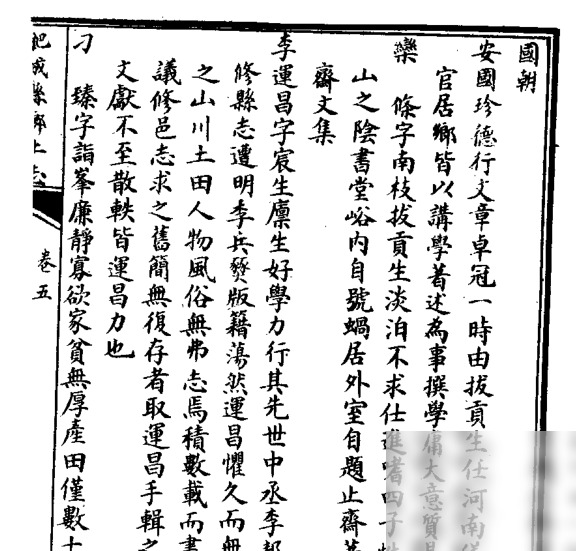 國朝
安國珍德行文章卓冠一時由拔貢生任河南
官居鄉皆以講學著述為事撰學庸大意質
欒 條字南枝拔貢生淡泊不求仕進嗜四子
山之陰書堂峪內自號蝸居外室自題止齋
齋文集
李運昌字宸生廩生好學力行其先世中丞李
修縣志遭明季兵燹版籍蕩然運昌懼久而無
之山川土田人物風俗無弗志焉積數載而書
議修邑志求之舊簡無復存者取運昌手輯之
文獻不至散軼皆運昌力也
刁 臻字詣峯廉靜寡欲家貧無厚產田僅數十
肥城縣鄉土志 卷五